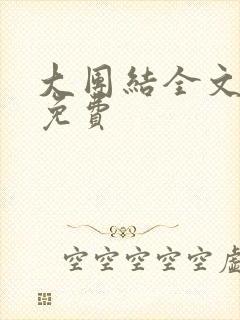 大团結全文
免費
空空空空空虛